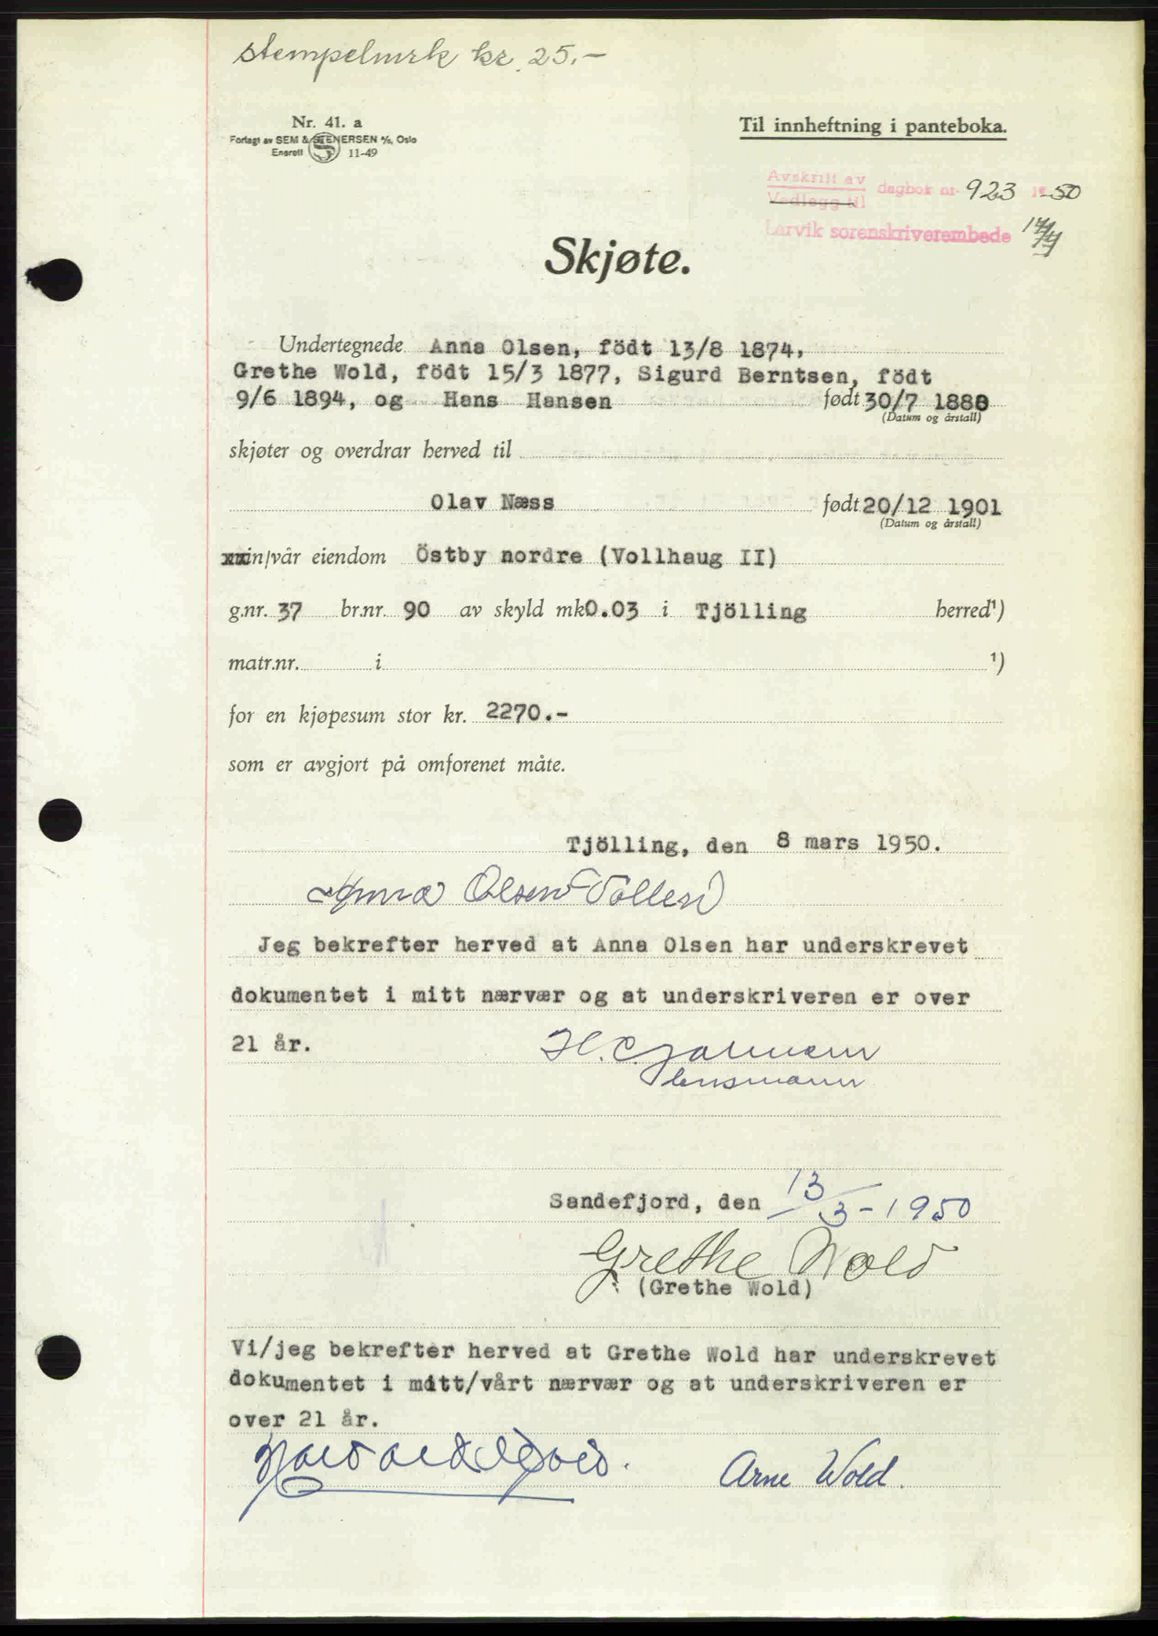 stempelmrk kr. 25.-
Nr. 41. a
Forlagt av SEM & STENERSEN A/S, Oslo
Enerett 11-49
Til innheftning i panteboka.
Avskrift av
Vedlegg til
dagbok nr. 923 19 50
Larvik sorenskriverembede
Skjøte.
Undertegnede Anna Olsen, födt 13/8 1874,
Grethe Wold, födt 15/3 1877, Sigurd Berntsen, födt
9/6 1894, og Hans Hansen født 30/7 1888
(Datum og årstall)
skjøter og overdrar herved til
Olav Næss født 20/12 1901
(Datum og årstall)
xxin/vår eiendom Östby nordre (Vollhaug II)
g.nr. 37 br.nr. 90 av skyld mk 0.03 i Tjölling herred¹)
matr.nr. i ¹)
for en kjøpesum stor kr. 2270.-
som er avgjort på omforenet måte.
Tjölling, den 8 mars 1950.
Anna Olsen
Jeg bekrefter herved at Anna Olsen har underskrevet
dokumentet i mitt nærvær og at underskriveren er over
21 år.
H. C.
lensmann
Sandefjord, den 13/3-1950
Grethe Wold
(Grethe Wold)
Vi/jeg bekrefter herved at Grethe Wold har underskrevet
dokumentet i mitt/vårt nærvær og at underskriveren er
over 21 år.
Arne Wold.